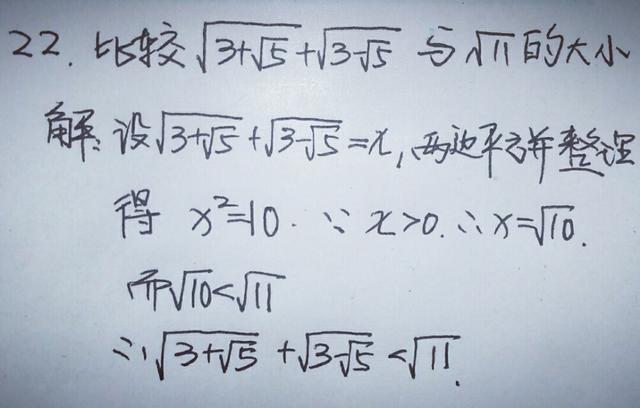 22. 比较√(3+√5)+√(3-√5) 与√11的大小
解: 设√(3+√5)+√(3-√5)=x, 两边平方并整理
得 x²=10. ∵ x>0. ∴x=√10.
而√10<√11
∴√(3+√5)+√(3-√5)<√11.